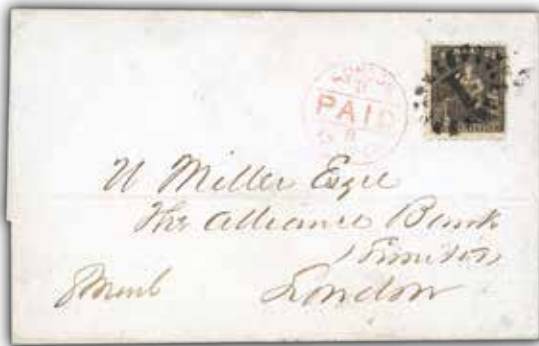 PAID
W Miller Esqre
The Alliance Bank
Limited
London